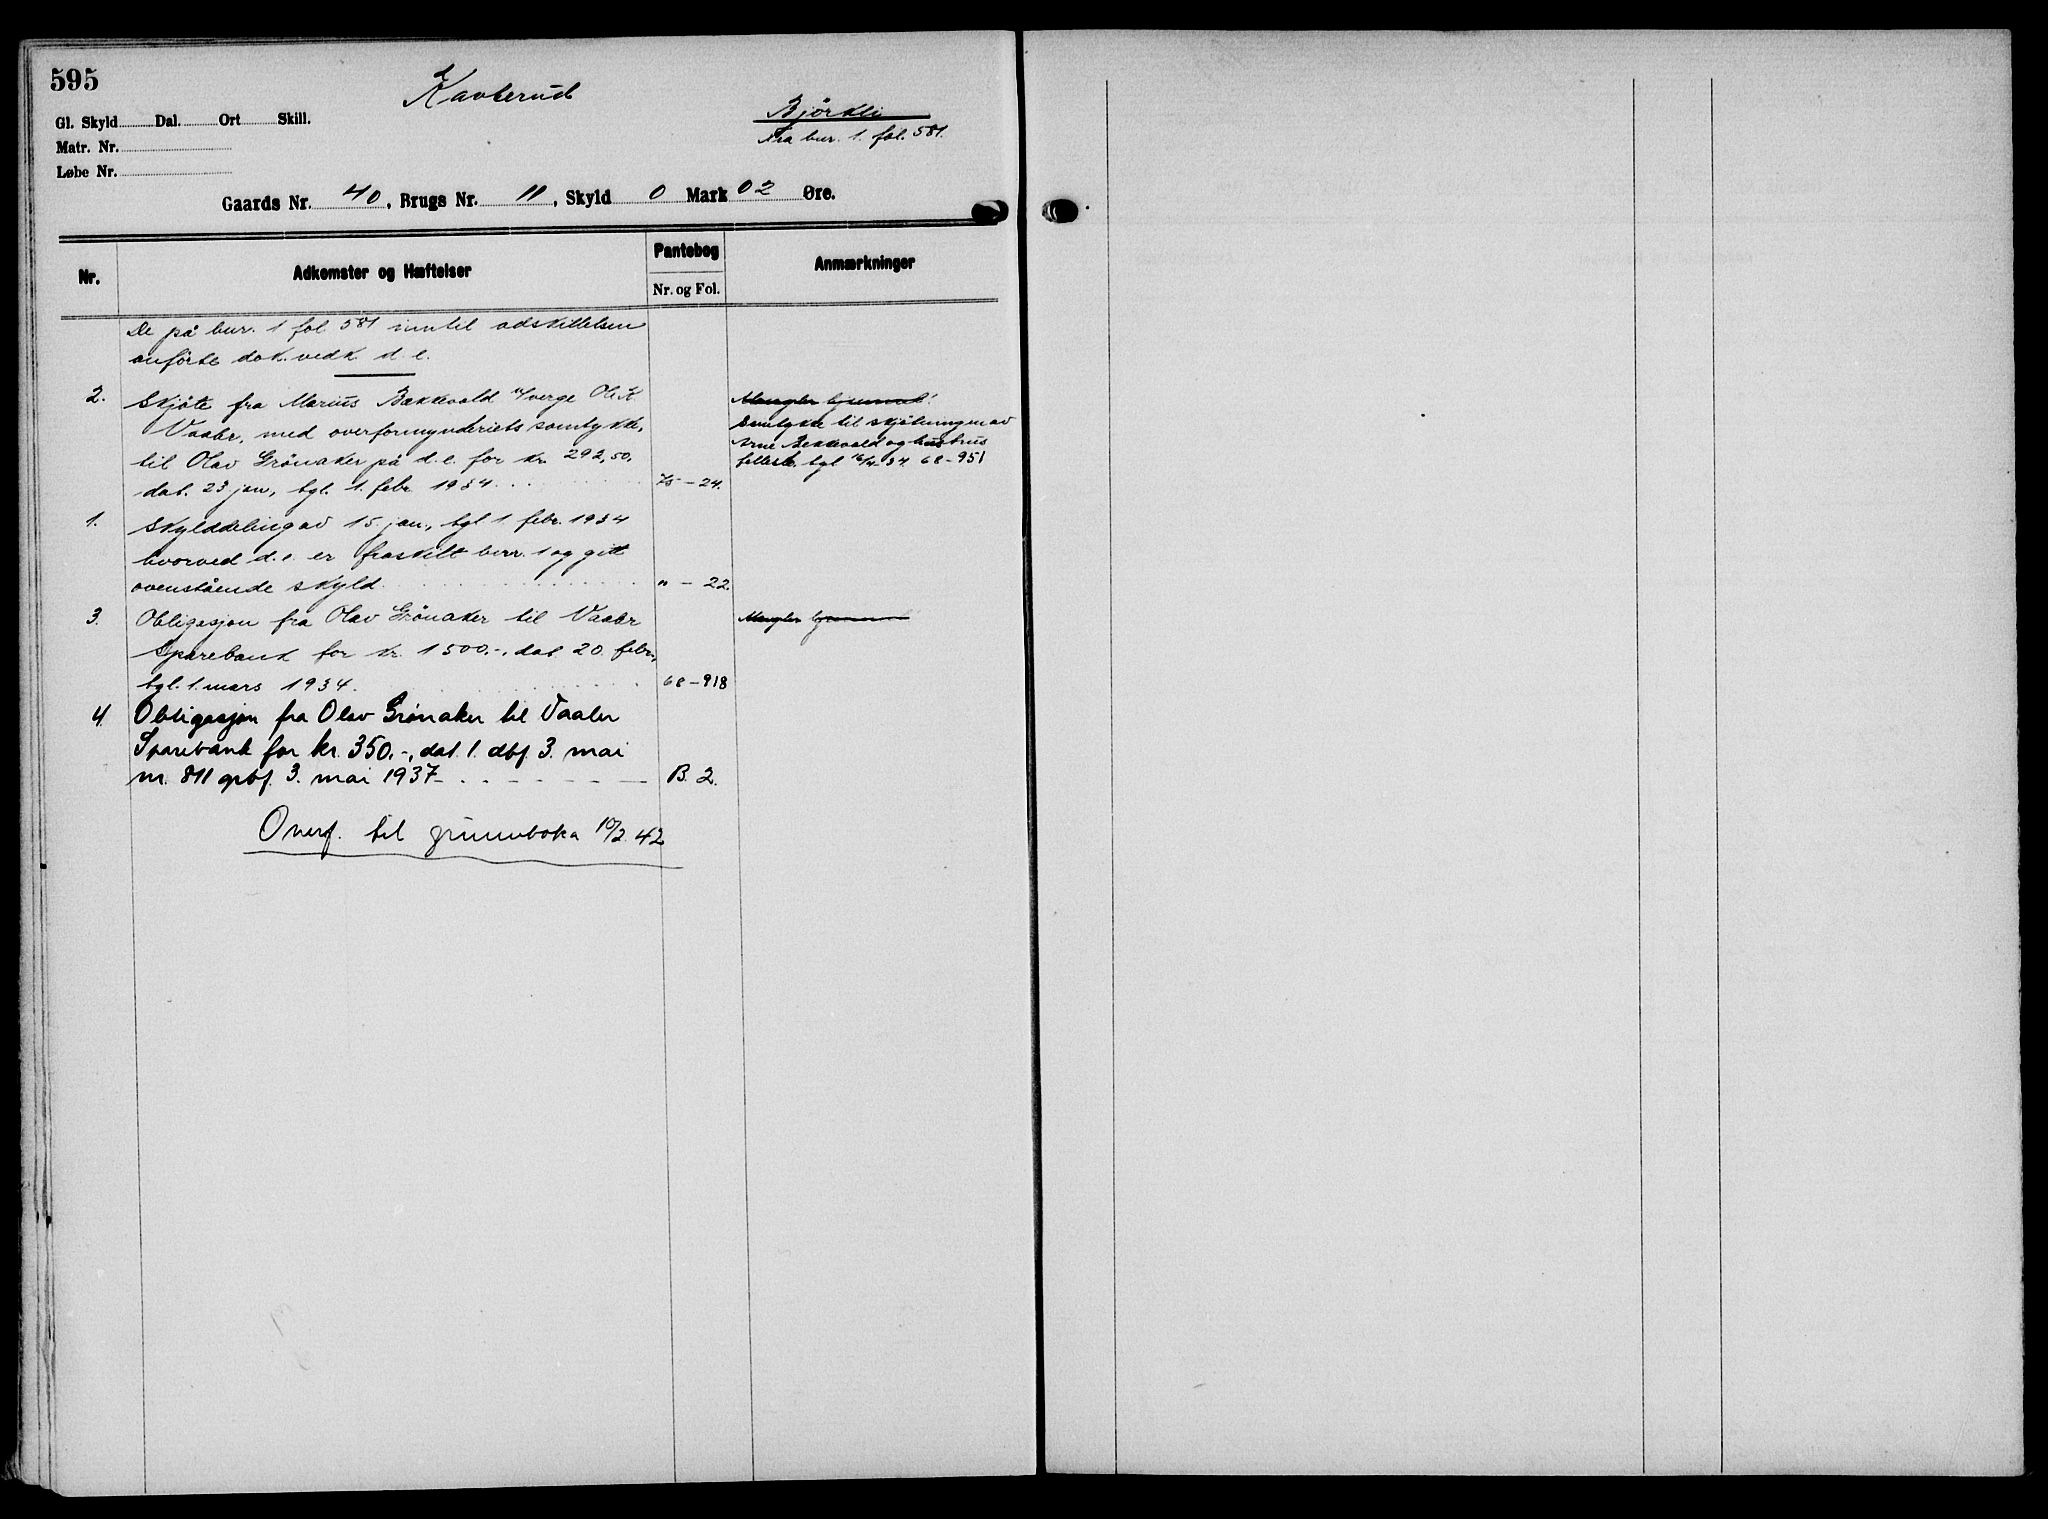 595
Kavterud
Bjørkli
Fra bnr. 1. fol. 581.
Gl. Skyld Dal. Ort Skill.
Matr. Nr.
Løbe Nr.
Gaards Nr. 40, Brugs Nr. 11, Skyld 0 Mark 02 Øre.
Nr. Adkomster og Hæftelser Pantebog Nr. og Fol. Anmærkninger
De på bnr. 1 fol 581 inntil adskillelsen
anførte dok. vedk. d. e.
2. Skjøte fra Marius Bækkevold v/verge Ole K.
Vaaler, med overformynderiets samtykke,
til Olav Grönaker på d. e. for kr. 292,50,
dat. 23 jan, tgl. 1. febr. 1934. 75 – 24.
Mangler hjemmel!
Samtykke til skjøtningen av
Arne Bekkevold og hustrus
tgl 16/4-34. 68-951
1. Skylddeling av 15. jan., tgl 1 febr. 1934
hvorved d. e. er fraskilt bnr. 1 og gitt
ovenstående skyld. " – 22.
3. Obligasjon fra Olav Grönaker til Vaaler
Sparebank for kr. 1500.-, dat. 20. febr.,
tgl. 1. mars 1934. 68-918
Mangler hjemmel
4. Obligasjon fra Olav Grönaker til Vaaler
Sparebank for kr. 350.-, dat. 1. dbf. 3. mai
nr. 811 grbf. 3. mai 1937 B. 2.
Overf. til grunnboka 10/2. 42